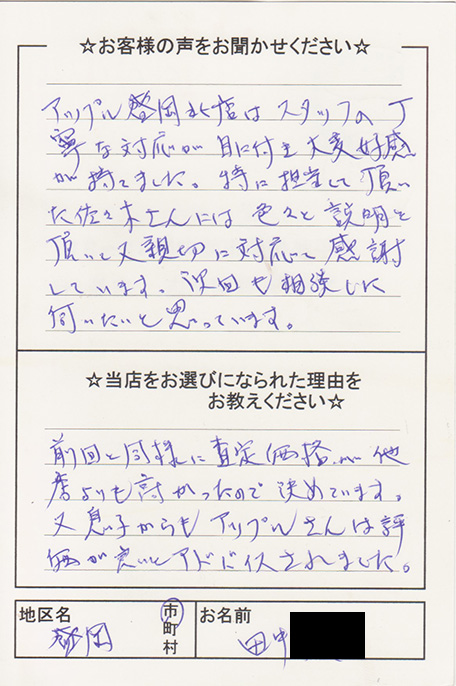 ☆お客様の声をお聞かせください☆
アップル盛岡北店は スタッフの丁
寧な対応が 目に付き 大変好感
が持てました。特に担当して頂い
た佐々木さんには 色々と説明を
頂いて又親切に対応して感謝
しています。次回も相談しに
伺いたいと思っています。
☆当店をお選びになられた理由を
お教えください☆
前回と同様に査定価格が他
店よりも高かったので決めています。
又息子からもアップルさんは評
価が良いとアドバイスされました。
地区名 盛岡 市 町 村 お名前 田中